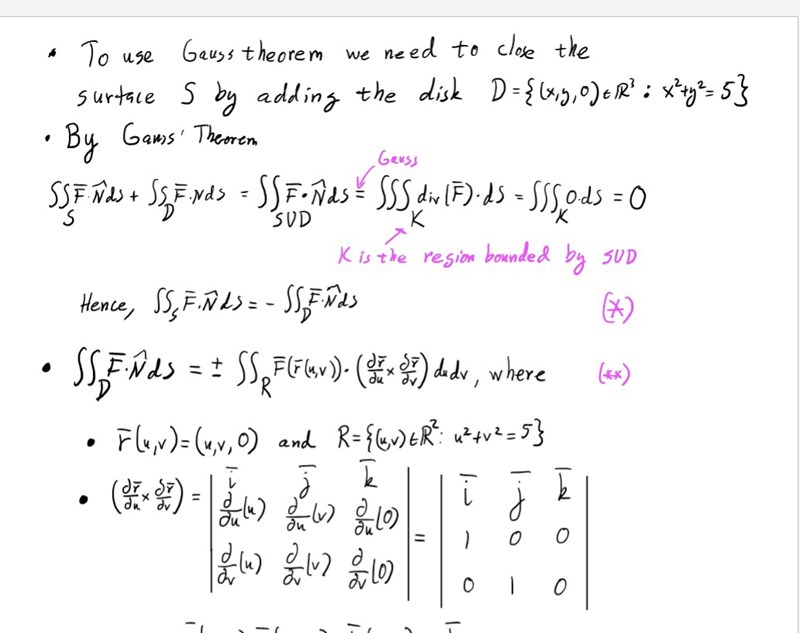 • To use Gauss theorem we need to close the
surface S by adding the disk D={(x,y,0)∈ℝ³ : x²+y²=5}
• By Gauss' Theorem
Gauss
∬_S F̄·N̂ds + ∬_D F̄·Nds = ∬_{SUD} F̄·N̂ds = ∭_K div(F̄)·dS = ∭_K 0·ds = 0
K is the region bounded by SUD
Hence, ∬_S F̄·N̂ds = - ∬_D F̄·N̂ds (*)
• ∬_D F̄·N̂ds = ± ∬_R F̄(r̄(u,v))·(∂r̄/∂u × ∂r̄/∂v) dudv, where (**)
• r̄(u,v)=(u,v,0) and R={(u,v)∈ℝ²: u²+v²=5}
• (∂r̄/∂u × ∂r̄/∂v) = | ī j̄ k̄ | = | ī j̄ k̄ |
| ∂/∂u(u) ∂/∂u(v) ∂/∂u(0) | | 1 0 0 |
| ∂/∂v(u) ∂/∂v(v) ∂/∂v(0) | | 0 1 0 |